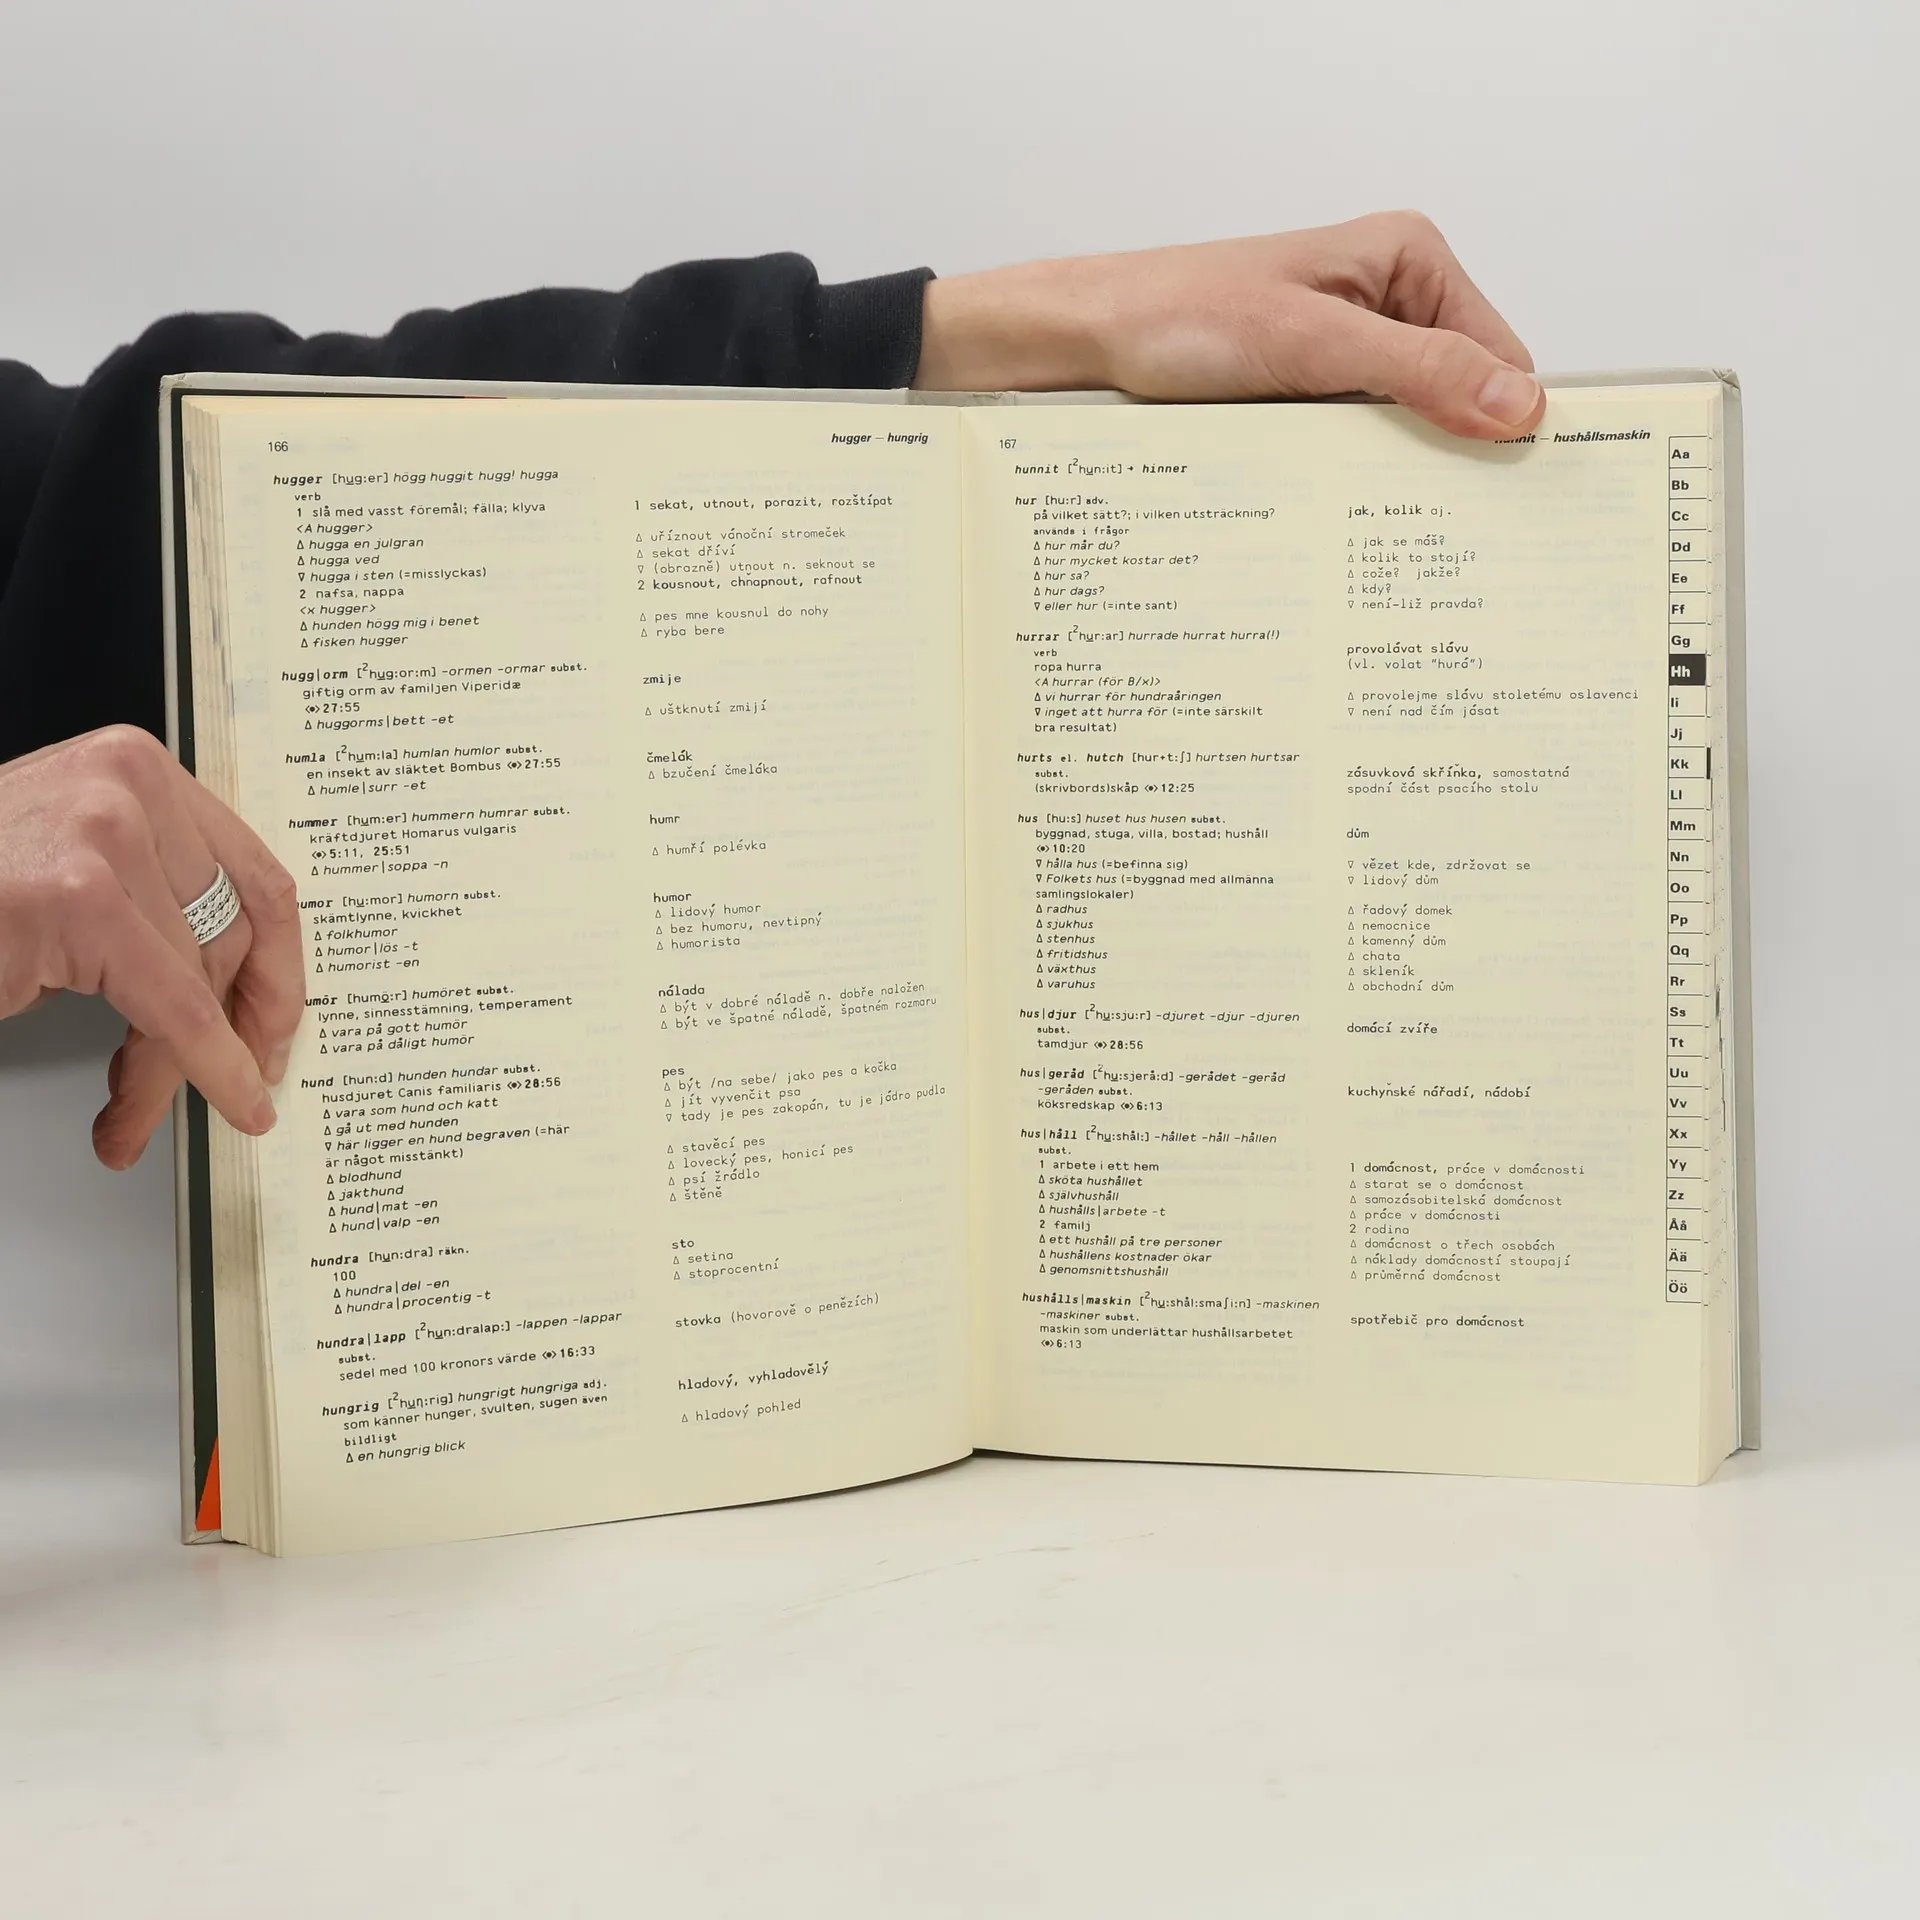 166
hugger — hungrig
hugger [hug:er] högg huggit hugg! hugga
verb
1 slå med vasst föremål; fälla; klyva
<A hugger>
Δ hugga en julgran
Δ hugga ved
∇ hugga i sten (=misslyckas)
2 nafsa, nappa
<x hugger>
Δ hunden högg mig i benet
Δ fisken hugger
1 sekat, utnout, porazit, rozštípat
Δ uříznout vánoční stromeček
Δ sekat dříví
∇ (obrazně) utnout n. seknout se
2 kousnout, chňapnout, rafnout
Δ pes mne kousnul do nohy
Δ ryba bere
hugg|orm [²hug:or:m] -ormen -ormar subst.
giftig orm av familjen Viperidæ
27:55
Δ huggorms|bett -et
zmije
Δ uštknutí zmijí
humla [²hum:la] humlan humlor subst.
en insekt av släktet Bombus 27:55
Δ humle|surr -et
čmelák
Δ bzučení čmeláka
hummer [hum:er] hummern humrar subst.
kräftdjuret Homarus vulgaris
5:11, 25:51
Δ hummer|soppa -n
humr
Δ humří polévka
umor [hu:mor] humorn subst.
skämtlynne, kvickhet
Δ folkhumor
Δ humor|lös -t
Δ humorist -en
humor
Δ lidový humor
Δ bez humoru, nevtipný
Δ humorista
umör [humö:r] humöret subst.
lynne, sinnesstämning, temperament
Δ vara på gott humör
Δ vara på dåligt humör
nálada
Δ být v dobré náladě n. dobře naložen
Δ být ve špatné náladě, špatném rozmaru
hund [hun:d] hunden hundar subst.
husdjuret Canis familiaris 28:56
Δ vara som hund och katt
Δ gå ut med hunden
∇ här ligger en hund begraven (=här
är något misstänkt)
Δ blodhund
Δ jakthund
Δ hund|mat -en
Δ hund|valp -en
pes
Δ být /na sebe/ jako pes a kočka
Δ jít vyvenčit psa
∇ tady je pes zakopán, tu je jádro pudla
Δ stavěcí pes
Δ lovecký pes, honicí pes
Δ psí žrádlo
Δ štěně
hundra [hun:dra] räkn.
100
Δ hundra|del -en
Δ hundra|procentig -t
sto
Δ setina
Δ stoprocentní
hundra|lapp [²hun:dralap:] -lappen -lappar
subst.
sedel med 100 kronors värde 16:33
stovka (hovorově o penězích)
hungrig [²huŋ:rig] hungrigt hungriga adj.
som känner hunger, svulten, sugen även
bildligt
Δ en hungrig blick
hladový, vyhladovělý
Δ hladový pohled
167
— hushållsmaskin
hunnit [²hun:it] → hinner
hur [hu:r] adv.
på vilket sätt?; i vilken utsträckning?
används i frågor
Δ hur mår du?
Δ hur mycket kostar det?
Δ hur sa?
Δ hur dags?
∇ eller hur (=inte sant)
jak, kolik aj.
Δ jak se máš?
Δ kolik to stojí?
Δ cože? jakže?
Δ kdy?
∇ není-liž pravda?
hurrar [²hur:ar] hurrade hurrat hurra(!)
verb
ropa hurra
<A hurrar (för B/x)>
Δ vi hurrar för hundraåringen
∇ inget att hurra för (=inte särskilt
bra resultat)
provolávat slávu
(vl. volat "hurá")
Δ provolejme slávu stoletému oslavenci
∇ není nad čím jásat
hurts el. hutch [hur+t:ʃ] hurtsen hurtsar
subst.
(skrivbords)skåp 12:25
zásuvková skříňka, samostatná
spodní část psacího stolu
hus [hu:s] huset hus husen subst.
byggnad, stuga, villa, bostad; hushåll
10:20
∇ hålla hus (=befinna sig)
∇ Folkets hus (=byggnad med allmänna
samlingslokaler)
Δ radhus
Δ sjukhus
Δ stenhus
Δ fritidshus
Δ växthus
Δ varuhus
dům
∇ vězet kde, zdržovat se
∇ lidový dům
Δ řadový domek
Δ nemocnice
Δ kamenný dům
Δ chata
Δ skleník
Δ obchodní dům
hus|djur [²hu:sju:r] -djuret -djur -djuren
subst.
tamdjur 28:56
domácí zvíře
hus|geråd [²hu:sjerå:d] -gerådet -geråd
-geråden subst.
köksredskap 6:13
kuchyňské nářadí, nádobí
hus|håll [²hu:shål:] -hållet -håll -hållen
subst.
1 arbete i ett hem
Δ sköta hushållet
Δ självhushåll
Δ hushålls|arbete -t
2 familj
Δ ett hushåll på tre personer
Δ hushållens kostnader ökar
Δ genomsnittshushåll
1 domácnost, práce v domácnosti
Δ starat se o domácnost
Δ samozásobitelská domácnost
Δ práce v domácnosti
2 rodina
Δ domácnost o třech osobách
Δ náklady domácností stoupají
Δ průměrná domácnost
hushålls|maskin [²hu:shål:smaʃi:n] -maskinen
-maskiner subst.
maskin som underlättar hushållsarbetet
6:13
spotřebič pro domácnost
Aa
Bb
Cc
Dd
Ee
Ff
Gg
Hh
Ii
Jj
Kk
Ll
Mm
Nn
Oo
Pp
Qq
Rr
Ss
Tt
Uu
Vv
Xx
Yy
Zz
Åå
Ää
Öö